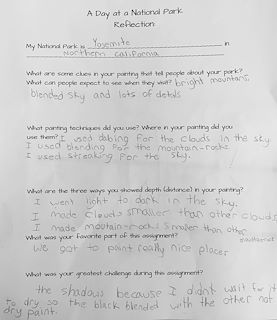 A Day at a National Park
Reflection
My National Park is Yosemite in
Northern California
What are some clues in your painting that tell people about your park?
What can people expect to see when they visit? bright mountains,
blended sky and lots of details
What painting techniques did you use? Where in your painting did you
use them? I used dabing for the clouds in the sky
I used blending for the mountain-rocks
I used streaking for the sky.
What are the three ways you showed depth (distance) in your painting?
I went light to dark in the sky.
I made clouds smaller than other clouds
I made moutain-rocks smaller than other
What was your favorite part of this assignment?
We got to paint really nice places
What was your greatest challenge during this assignment?
the shadows because I didnt wait for it
to dry so the black blended with the other not
dry paint.